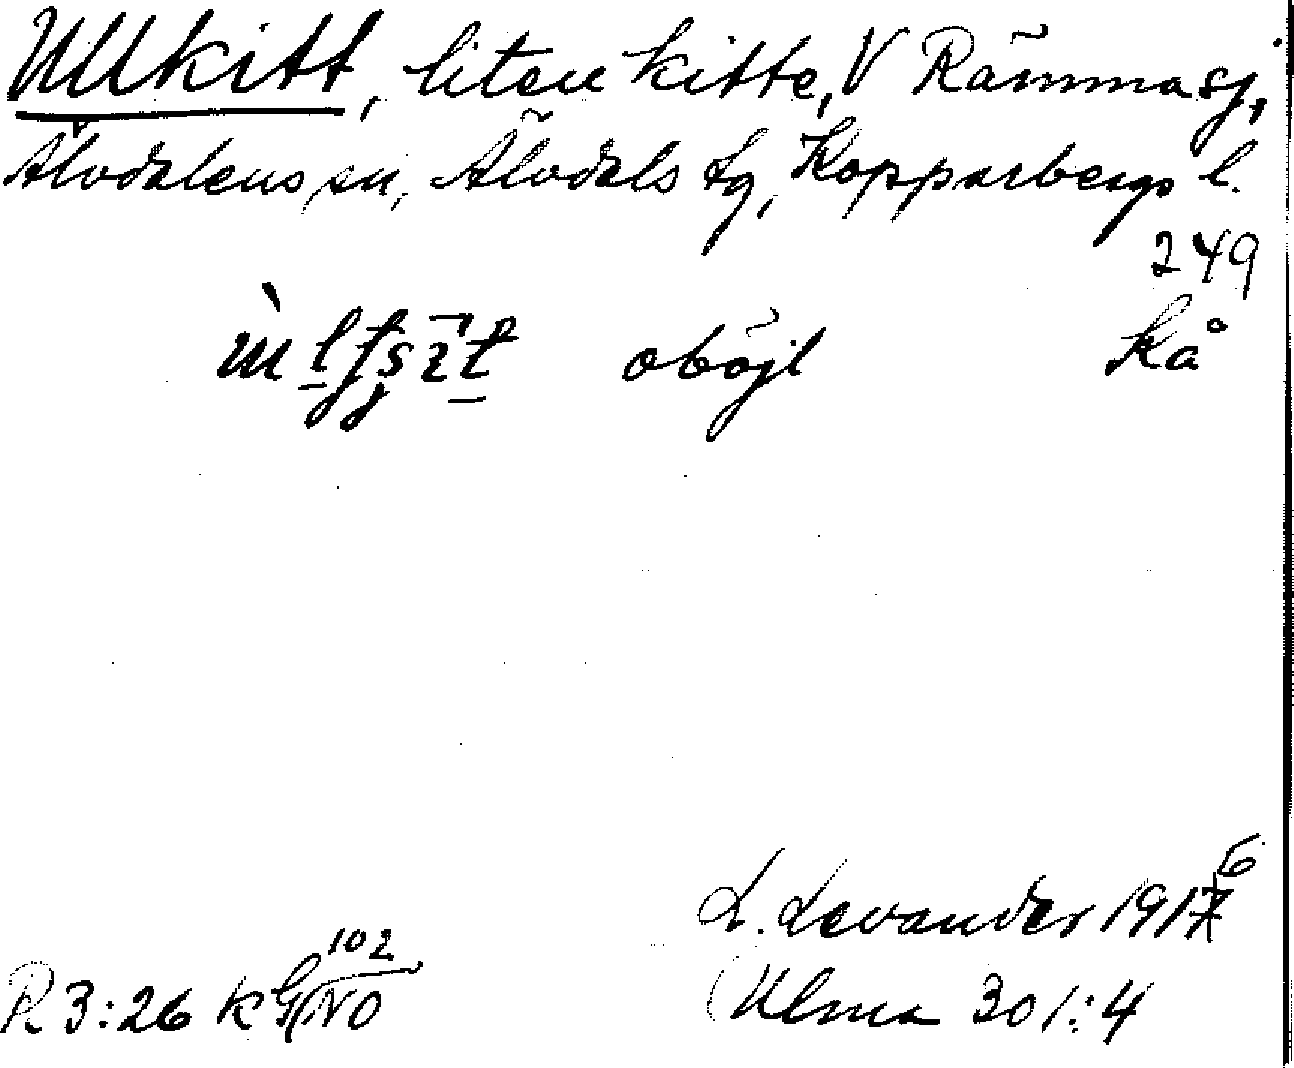 Ullkitt, liten kitte, V Rämmasj,
Älvdalens sn, Älvdals tg, Kopparbergs l.
249
oböjl kå
L. Levander 1916
R 3:26 k 102 NO
(Ulma 301:4